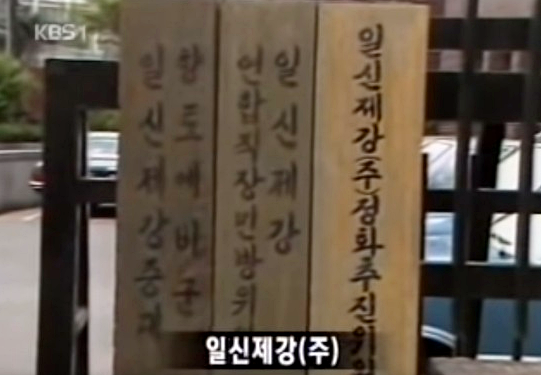 KBS1
일신제강(주)정화추진위원
일신제강
연합직장민방위
향토예비군
일신제강중대
일신제강(주)